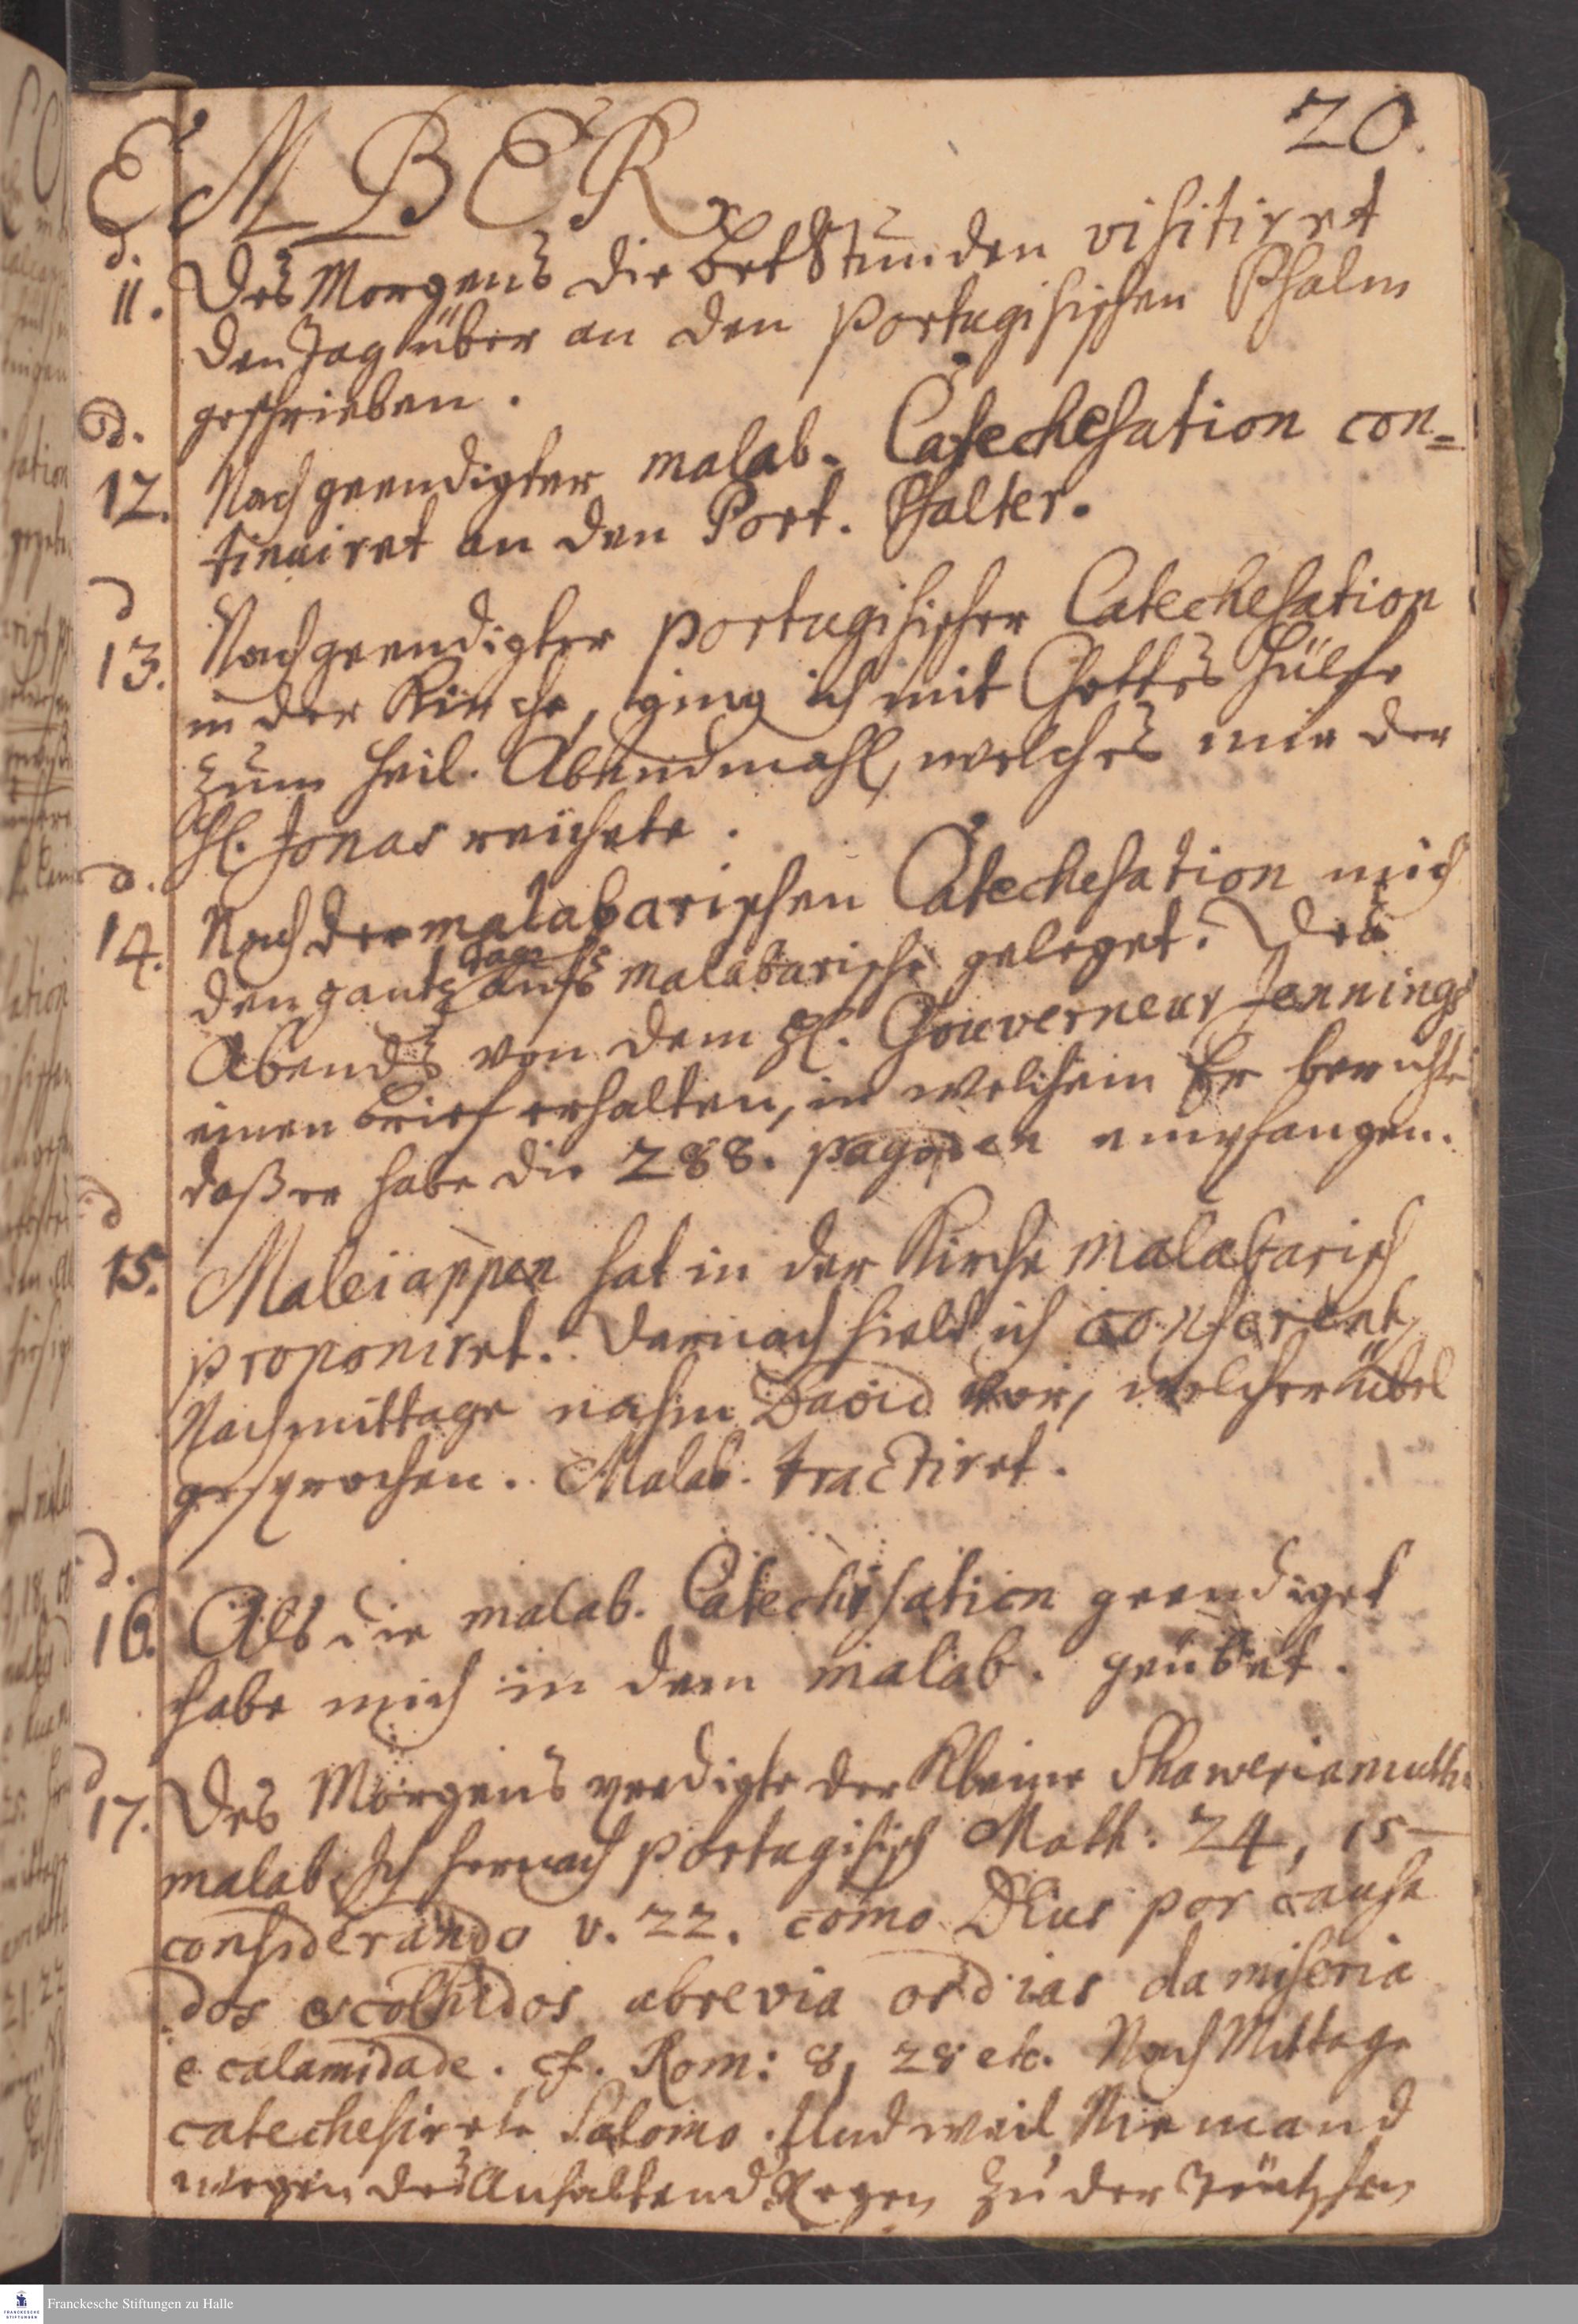 20.
EMBER.
d.
11. Des Morgens die betStunden visitiret
den Tag über an den Portugisischen Psalm
geschrieben.
d.
12. Nach geendigter malab. Catechesation con=
tinuiret an den Port. Psalter.
d
13. Nach geendigter portugisischer Catechesation
in der Kirche, ging ich mit Gottes Hülfe
zum heil. Abendmahl, welches mir der
H. Jonas reichete.
d.
14. Nach der malabarischen Catechesation mich
den gantz tage aufs malabarische geleget. Des
Abends von dem H. Gouverneur Jennings
einen brief erhalten, in welchem Er berichtet
daß er habe die 288. pagoden empfangen.
d
15. Maleiappen hat in der Kirche malabarisch
proponiret. Darnach hield ich conferentz
Nachmittage nahm David vor, welcher übel
gesprochen. Malab. tractiret.
d.
16. Als die malab. Catechisation geendiget
habe mich in dem malab. geübet.
d
17. Des Morgens predigte der Kleine Shaweriamutthu
malab. Ich hernach portugisisch Matth: 24, 15–
considerando v. 22. como DEus por causa
dos escolhidos abrevia os dias da miseria
e calamidade. cf. Rom: 8, 28 etc. Nach Mittage
catechesirete Salomo. Und weil Niemand
wegen des Anhaltend Regen zu der Teutschen
Franckesche Stiftungen zu Halle